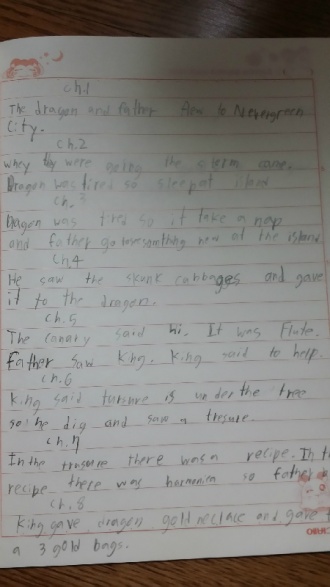 ch.1
The dragon and father flew to Nevergreen
City.
ch.2
were going the storm came.
Dragon was tired so sleep at island
ch.3
Dragon was tired so it take a nap
and father go at the island
ch4
He saw the skunk cabbages and gave
it to the dragon.
ch.5
The canary said hi. It was Flute.
Father saw King. King said to help.
ch.6
King said tursure is under the tree
so he dig and saw a tresure.
ch.7
In the there was a recipe. In
recipe there was so father
ch.8
King gave dragon gold neclace and gave
a 3 gold bags.